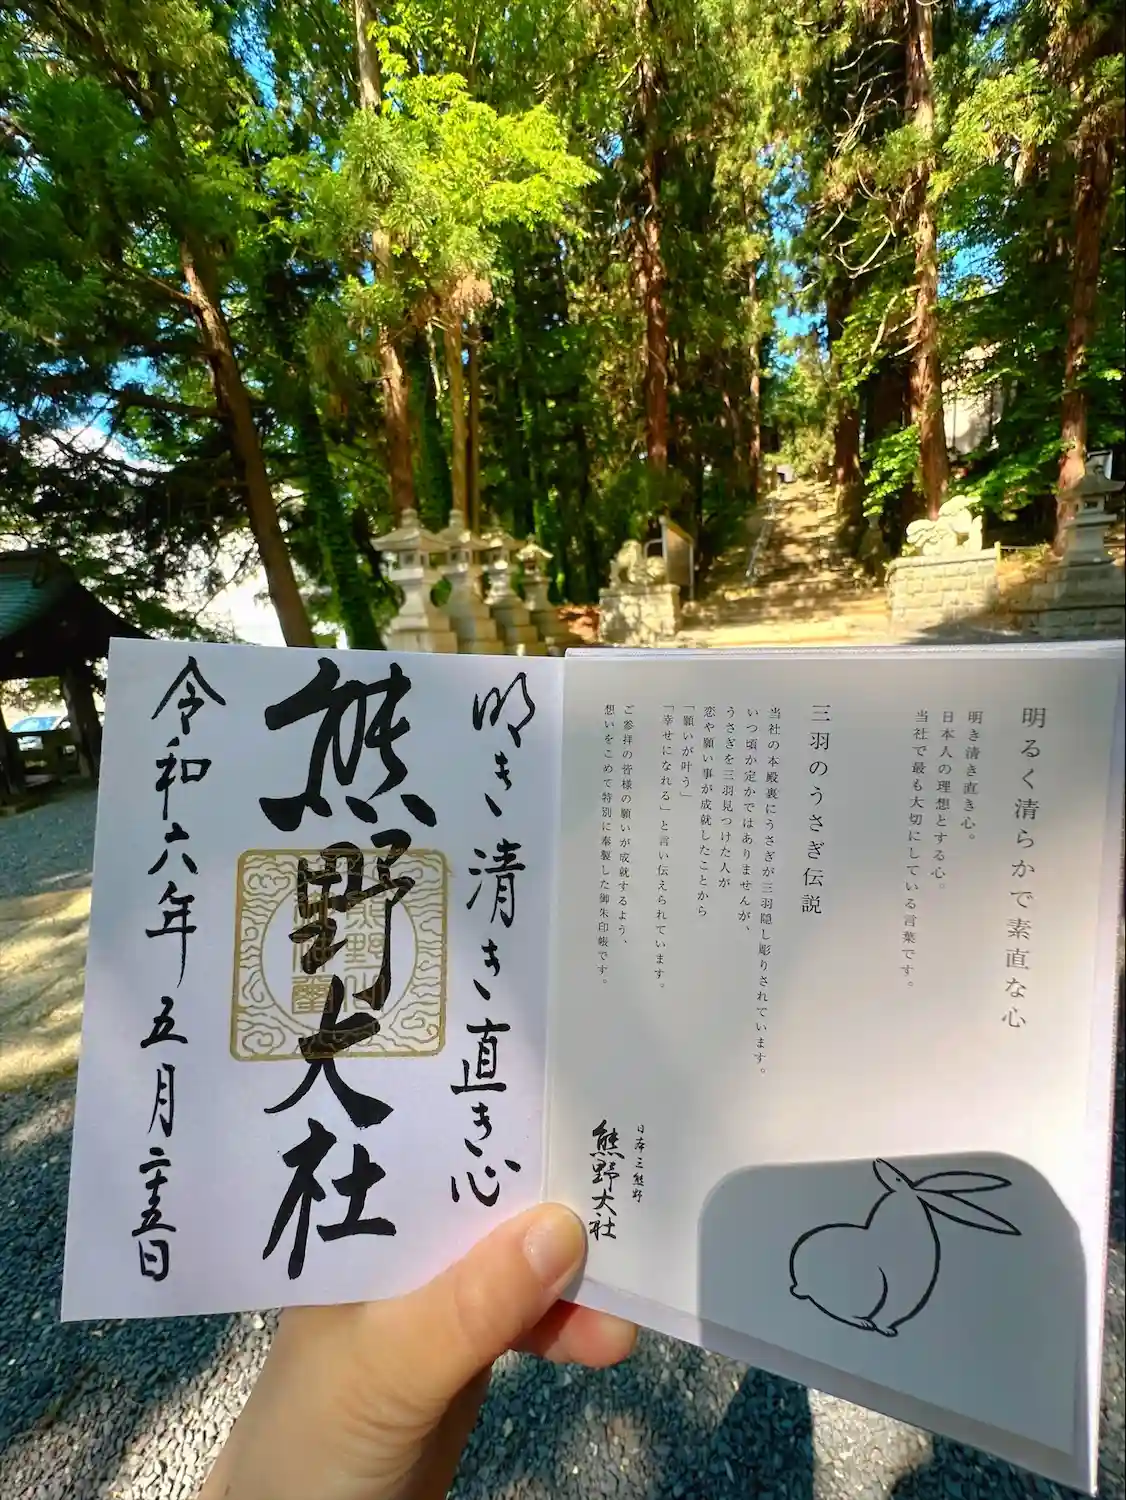 明るく清らかで素直な心
明き清き直き心。
日本人の理想とする心。
当社で最も大切にしている言葉です。
三羽のうさぎ伝説
当社の本殿裏にうさぎが三羽隠し彫りされています。
いつ頃か定かではありませんが、
うさぎを三羽見つけた人が
恋や願い事が成就したことから
「願いが叶う」
「幸せになれる」と言い伝えられています。
ご参拝の皆様の願いが成就するよう、
想いをこめて特別に奉製した御朱印帳です。
日本三熊野
熊野大社
明き清き直き心
熊野大社
令和六年五月二十五日